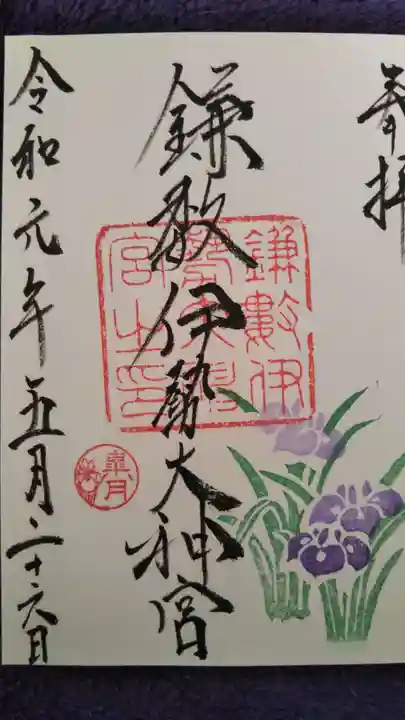 奉拝
鎌数伊勢大神宮
鎌數伊
勢大神
宮之印
皐月
令和元年五月二十六日